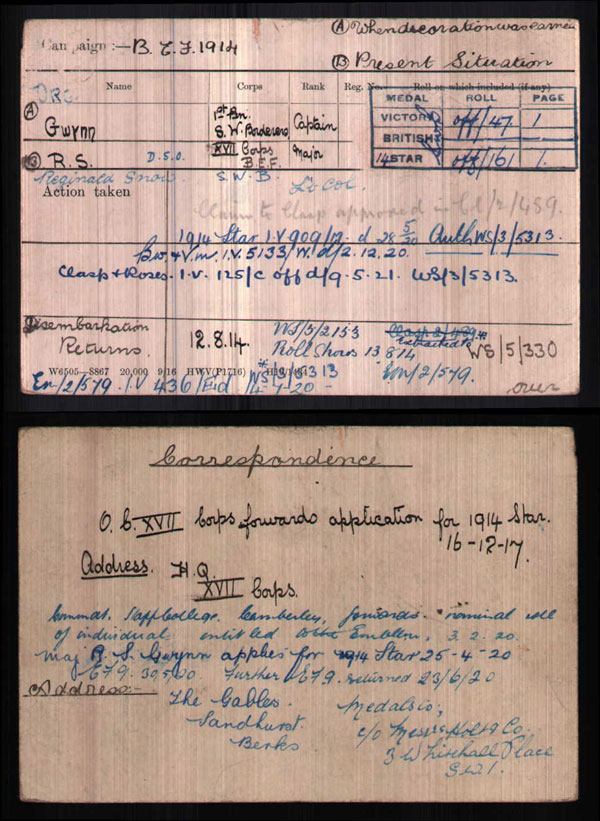 Campaign :— B.E.F. 1914
(A) When decoration was earned
(B) Present Situation
Name Corps Rank Reg. No. Roll on which included (if any)
MEDAL ROLL PAGE
VICTORY off/47 1
BRITISH
14 STAR off/161 1.
(A) Gwynn 1st Bn. S.W. Borderers Captain
(B) R.S. D.S.O. XVII Corps B.E.F. Major
Reginald Snow. S.W.B. Lt Col.
Action taken
Claim to Clasp approved in /2/489.
1914 Star I.V 909/ d 28 5/20 Auth WS/3/5313.
Bw. & V.m. I.V. 5133/W. d/2.12.20.
Clasp & Roses. I.V. 125/C off d/9.5.21. WS/3/5313.
Disembarkation Returns. 12.8.14.
WS/3/2153 Clasp 2/489 *
Roll Shows 13 8 14 Extracted
WS/5/330
W6505—S867 20,000 9/16 HWV(P1716)
* WS/3/5313
Em/2/579. I.V 436/Eid 14-7-20 - Em/2/579.
over
Correspondence
O.C. XVII Corps forwards application for 1914 Star.
16-12-17.
Address. H.Q.
XVII Corps.
Commdt. Staff College. Camberley, forwards nominal roll
of individual entitled to the Emblem, 3.2.20.
Maj R. S. Gwynn applies for 1914 Star 25-4-20
E79. 30,5,20 Further E79. returned 23/6/20
Address:-
The Gables.
Sandhurst.
Berks
Medals to;
c/o Messrs Holt & Co.
3 Whitehall Place
S.W.1.